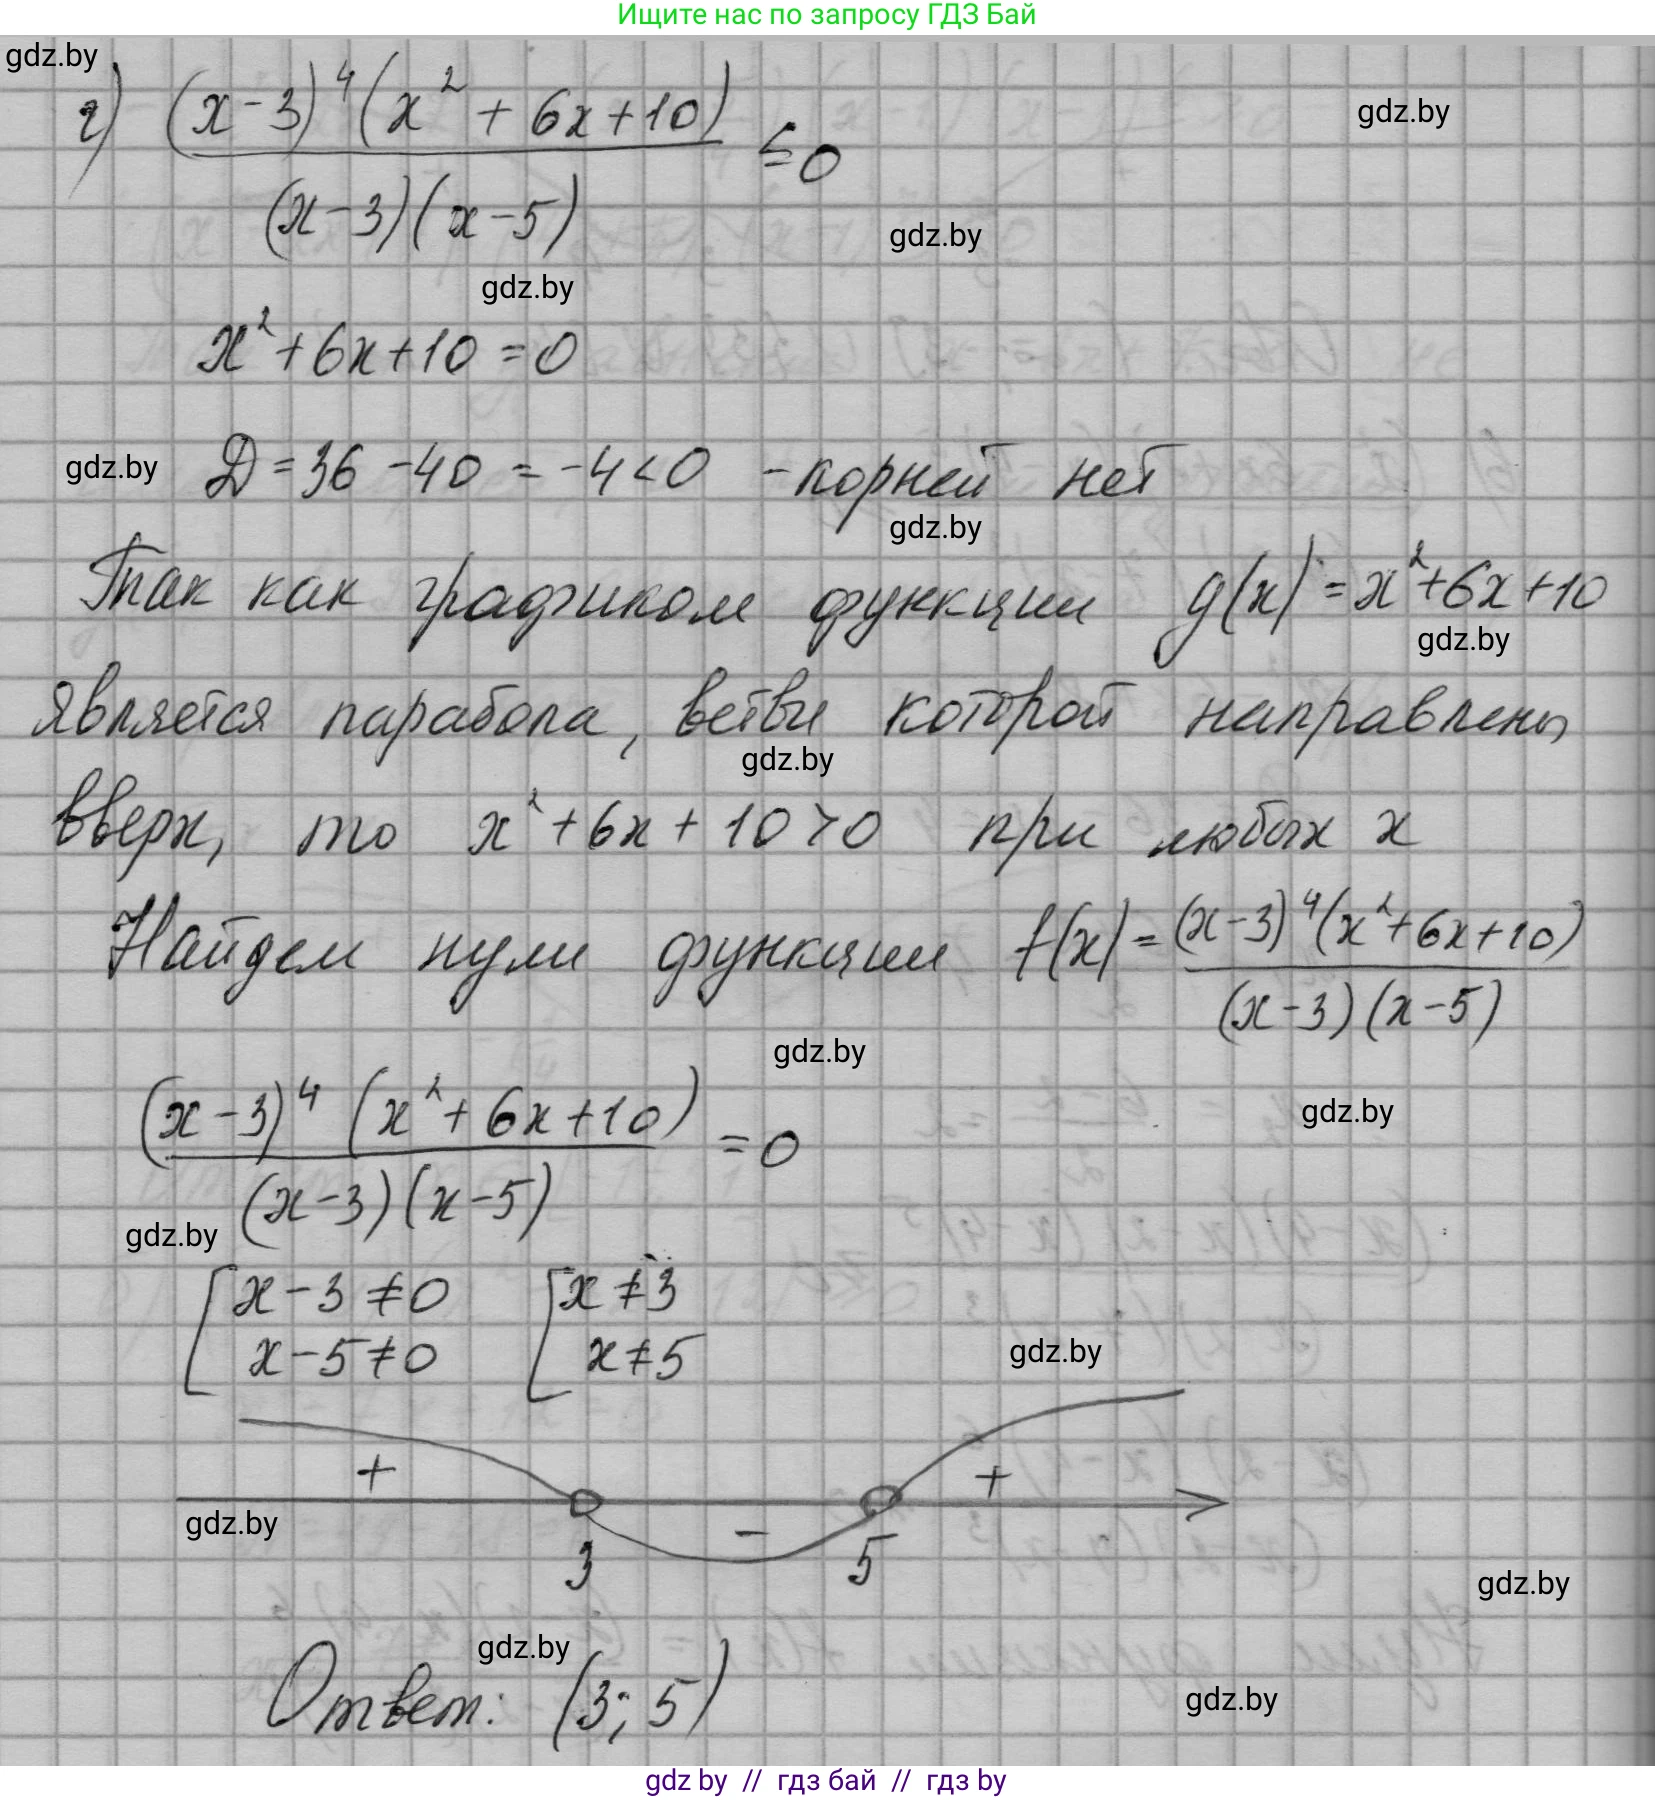 Ищите нас по запросу ГДЗ Бай
gdz.by
г) (x-3)⁴(x²+6x+10)
≤0
(x-3)(x-5)
gdz.by
gdz.by
gdz.by
x²+6x+10=0
gdz.by
D=36-40=-4<0 -корней нет
gdz.by
Так как графиком функции g(x)=x²+6x+10
gdz.by
является парабола, ветви которой направлены
gdz.by
вверх, то x²+6x+10>0 при любых x
Найдем нули функции f(x)=(x-3)⁴(x²+6x+10)
(x-3)(x-5)
gdz.by
(x-3)⁴(x²+6x+10)
=0
gdz.by
(x-3)(x-5)
gdz.by
[x-3≠0 [x≠3
x-5≠0 x≠5
gdz.by
+ - +
gdz.by
3 5
gdz.by
gdz.by
Ответ: (3; 5)
gdz.by
gdz by // гдз бай // гдз by